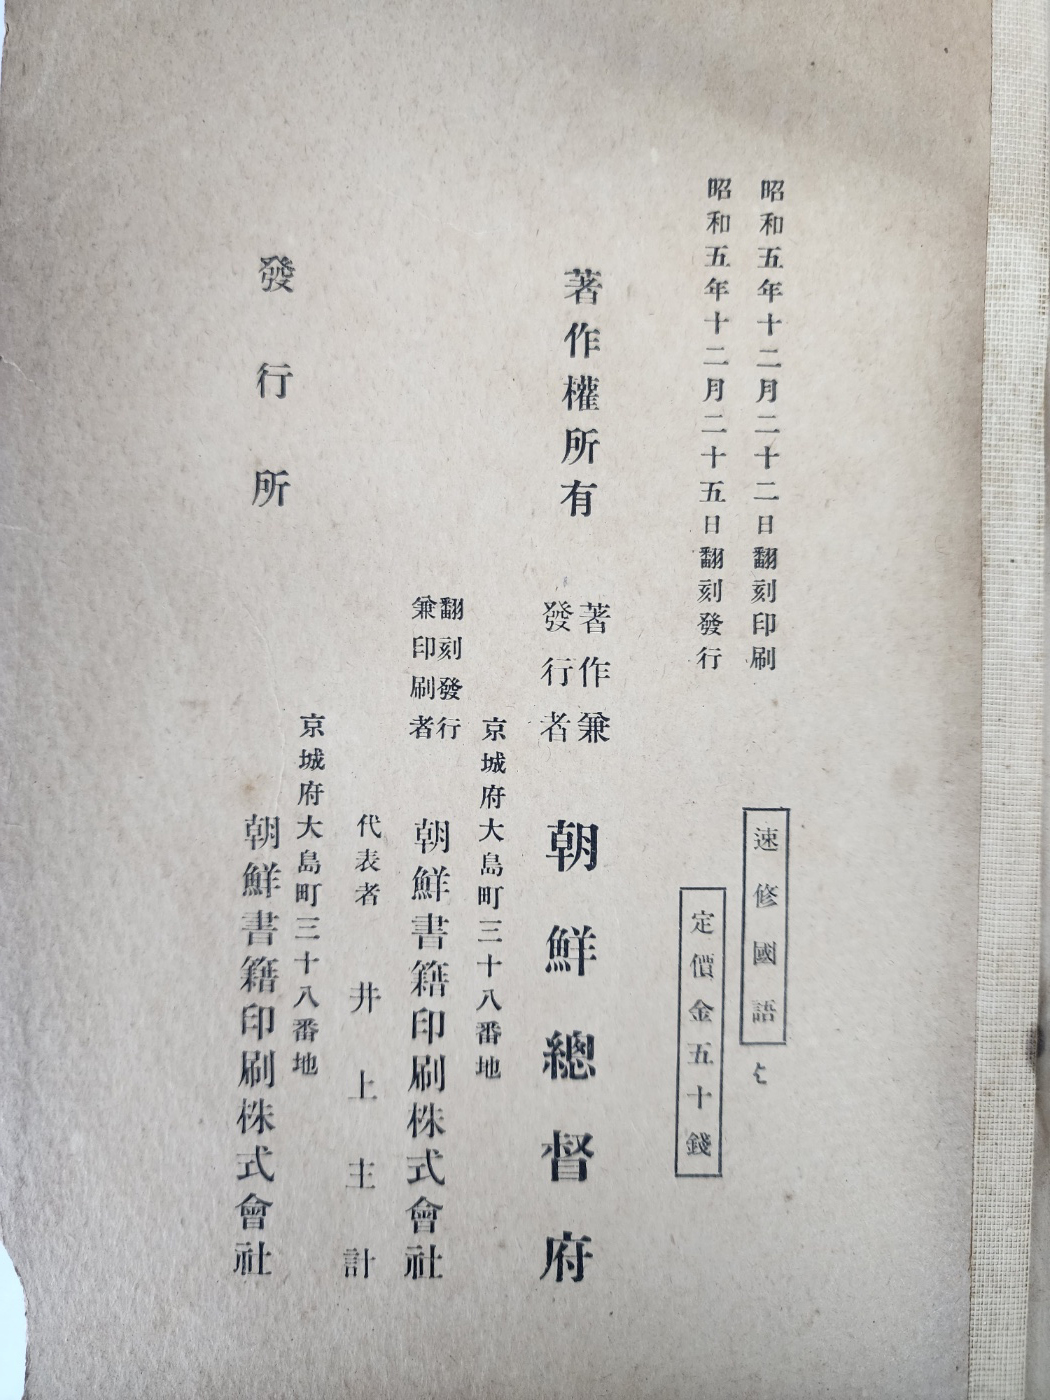 昭和五年十二月二十二日翻刻印刷
昭和五年十二月二十五日翻刻發行
速修國語
定價金五十錢
著作權所有
著作兼
發行者
朝鮮總督府
京城府大島町三十八番地
翻刻發行
兼印刷者
朝鮮書籍印刷株式會社
代表者 井上主計
京城府大島町三十八番地
發行所
朝鮮書籍印刷株式會社